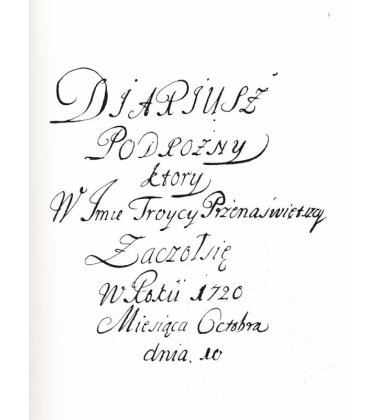 DIARIUSZ
PODROŻNY
ktory
W Imie Troycy Przenaświętszey
Zaczołsię
W Roku 1720
Miesiąca Octobra
dnia. 10